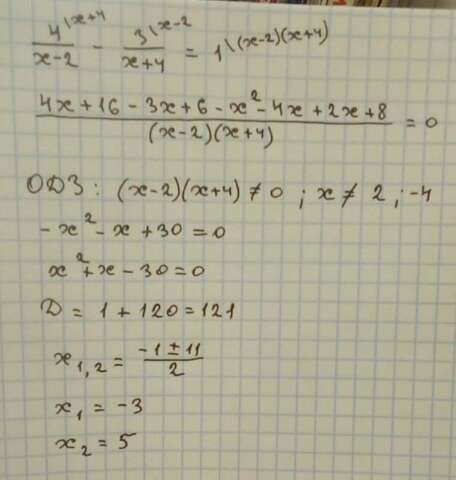 4\x+4/(x-2) - 3\x-2/(x+4) = 1\(x-2)(x+4)
(4x+16-3x+6-x²-4x+2x+8)/((x-2)(x+4)) = 0
ОДЗ: (x-2)(x+4) ≠ 0 ; x ≠ 2 ; -4
-x²-x+30=0
x²+x-30=0
D = 1+120=121
x₁,₂ = (-1±11)/2
x₁ = -3
x₂ = 5